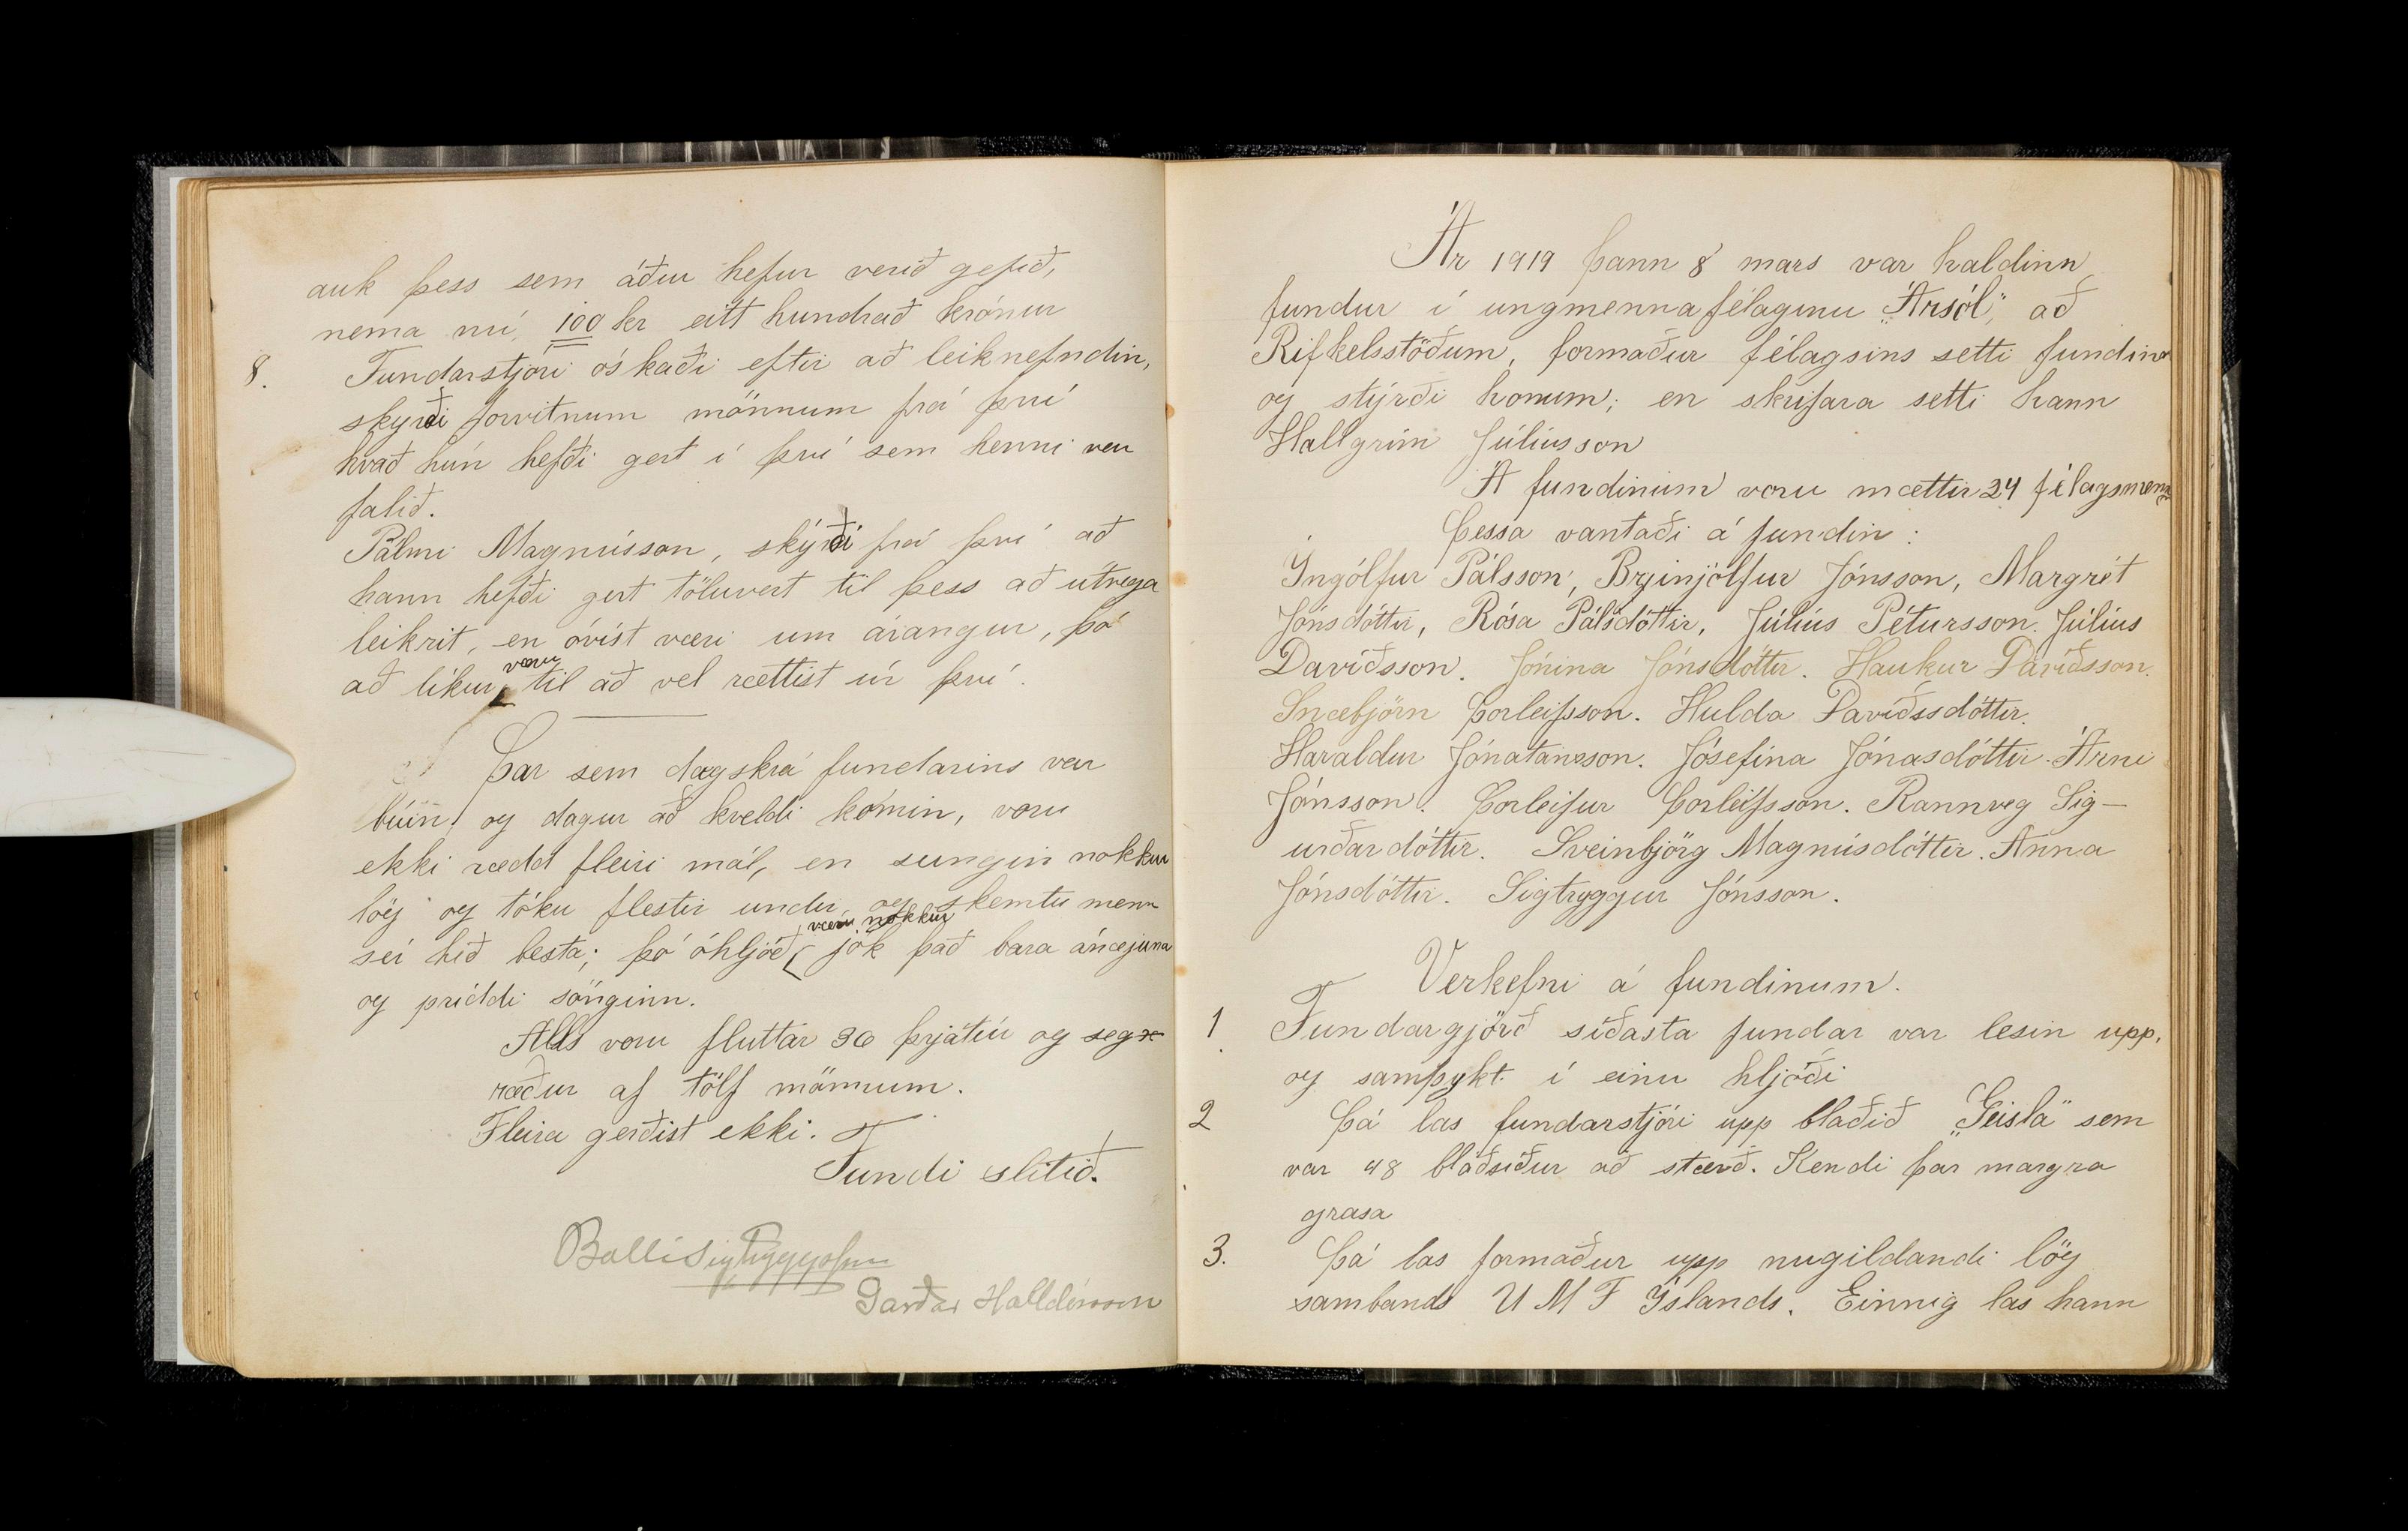 auk þess sem áður hefur verið gefið,
nema nú, 100 kr eitt hundrað krónur
8. Fundarstjóri óskaði eftir að leiknefndin,
skyrði forvitnum mönnum frá því
hvað hún hefði gert í því sem henni var
falið.
Pálmi Magnússon, skýrði frá því að
hann hefði gert töluvert til þess að útvega
leikrit, en óvíst væri um árangur, þó
að líkur væru til að vel rættist úr því.
Þar sem dagskrá fundarins var
búin, og dagur að kveldi komin, voru
ekki rædd fleiri mál, en sungin nokkur
lög og tóku flestir undir, og skemtu menn
sér hið besta; þó óhljóð væru nokkur jók það bara ánæjuna
og príddi sönginn.
Alls voru fluttar 36 þrjátíu og segx
ræður af tólf mönnum.
Fleira gerðist ekki.
Fundi slitið.
Balli Sigtryggvsson
Garðar Halldórsson
Ár 1919 þann 8 mars var haldinn
fundur í ungmennafélaginu „Ársól", að
Rifkelsstöðum, formaður félagsins setti fundinn
og stýrði honum; en skrifara setti hann
Hallgrím Júlíusson
Á fundinum voru mættir 24 félagsmenn
Þessa vantaði á fundin:
Yngólfur Pálsson, Brynjólfur Jónsson, Margrét
Jónsdóttir, Rósa Pálsdóttir, Júlíus Pétursson. Júlíus
Davíðsson. Jónína Jónsdóttir. Haukur Davíðsson.
Snæbjörn Þorleifsson. Hulda Davíðssdóttir.
Haraldur Jónatansson. Jósefína Jónasdóttir. Árni
Jónsson. Þorleifur Þorleifsson. Rannveg Sig-
urðardóttir. Sveinbjörg Magnúsdóttir. Anna
Jónsdóttir. Sigtryggur Jónsson.
Verkefni á fundinum.
1 Fundargjörð síðasta fundar var lesin upp.
og samþykt í einu hljóði
2 Þá las fundarstjóri upp blaðið „Geisla" sem
var 48 blaðsíður að stærð. Kendi þar margra
grasa
3. Þá las formaður upp nugildandi lög
sambands U M F Yslands. Einnig las hann